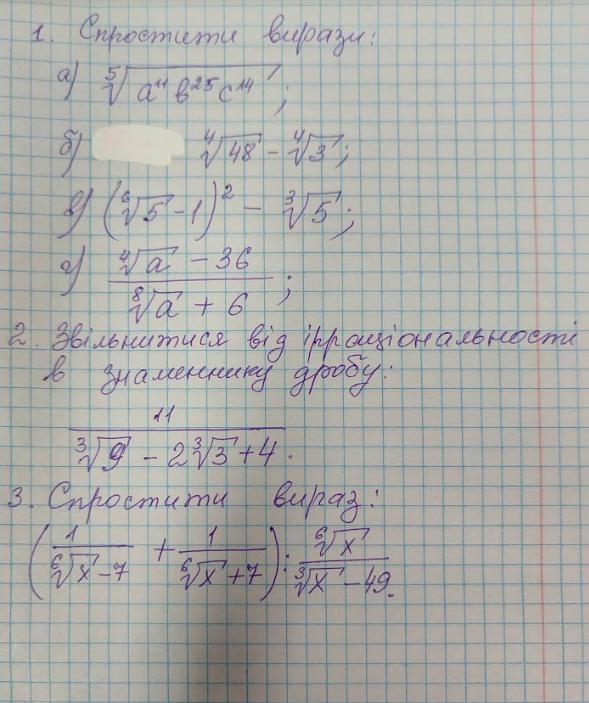 1. Спростити вирази:
а) ⁵√(a¹¹b²⁵c¹⁴);
б) ⁴√48 - ⁴√3;
в) (⁶√5 - 1)² - ³√5;
г) (⁴√a - 36)/(⁸√a + 6);
2. Звільнитися від ірраціональності
в знаменнику дробу:
11/(³√9 - 2³√3 + 4).
3. Спростити вираз:
(1/(⁶√x - 7) + 1/(⁶√x + 7)) : ⁶√x/(³√x - 49).